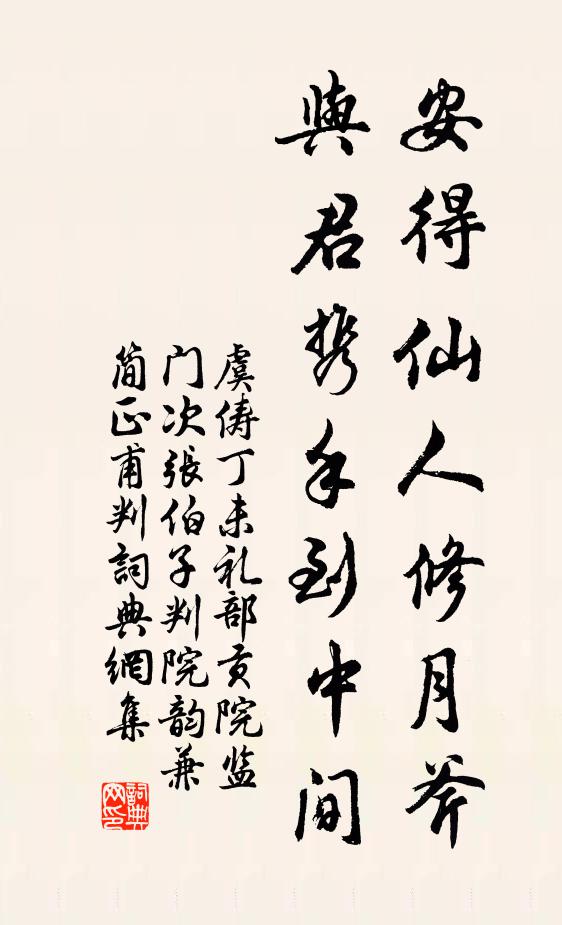 安得仙人修月斧
與君携手到中间
虞俦丁未礼部贡院监
门次張伯子判院韵兼
简正甫判詞典網集
詞典网印